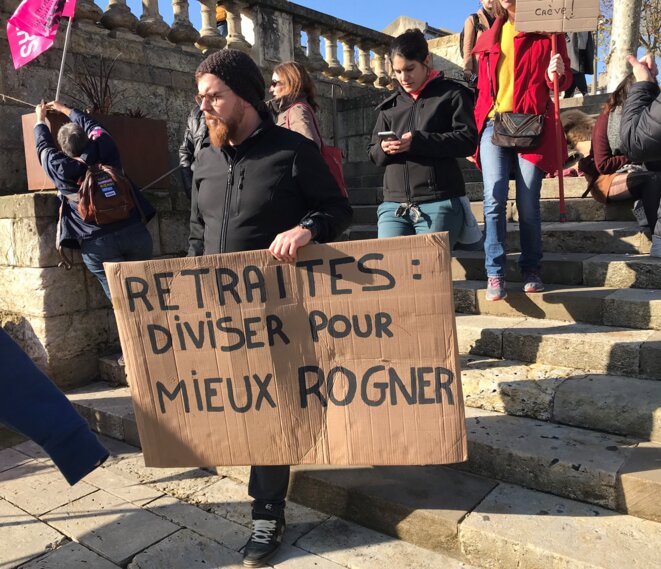 Crève !
RETRAITES :
DIVISER POUR
MIEUX ROGNER